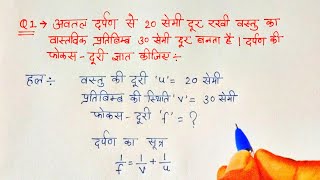 Q1.→ अवतल दर्पण से 20 सेमी दूर रखी वस्तु का
वास्तविक प्रतिबिम्ब 30 सेमी दूर बनता है। दर्पण की
फोकस-दूरी ज्ञात कीजिए ÷
हल ÷ वस्तु की दूरी 'u' = 20 सेमी
प्रतिबिम्ब की स्थिति 'v' = 30 सेमी
फोकस-दूरी 'f' = ?
दर्पण का सूत्र
1/f = 1/v + 1/u